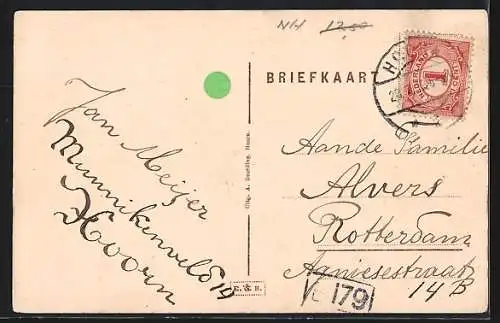 NH 12.50
BRIEFKAART
NEDERLAND
1
Jan Meijer
Munnikenveld 14
Hoorn
Aan de Familie
Alvers
Rotterdam
Agniesestraat
14B
L 179
Uitg. A. Hoorn.
E. & B.